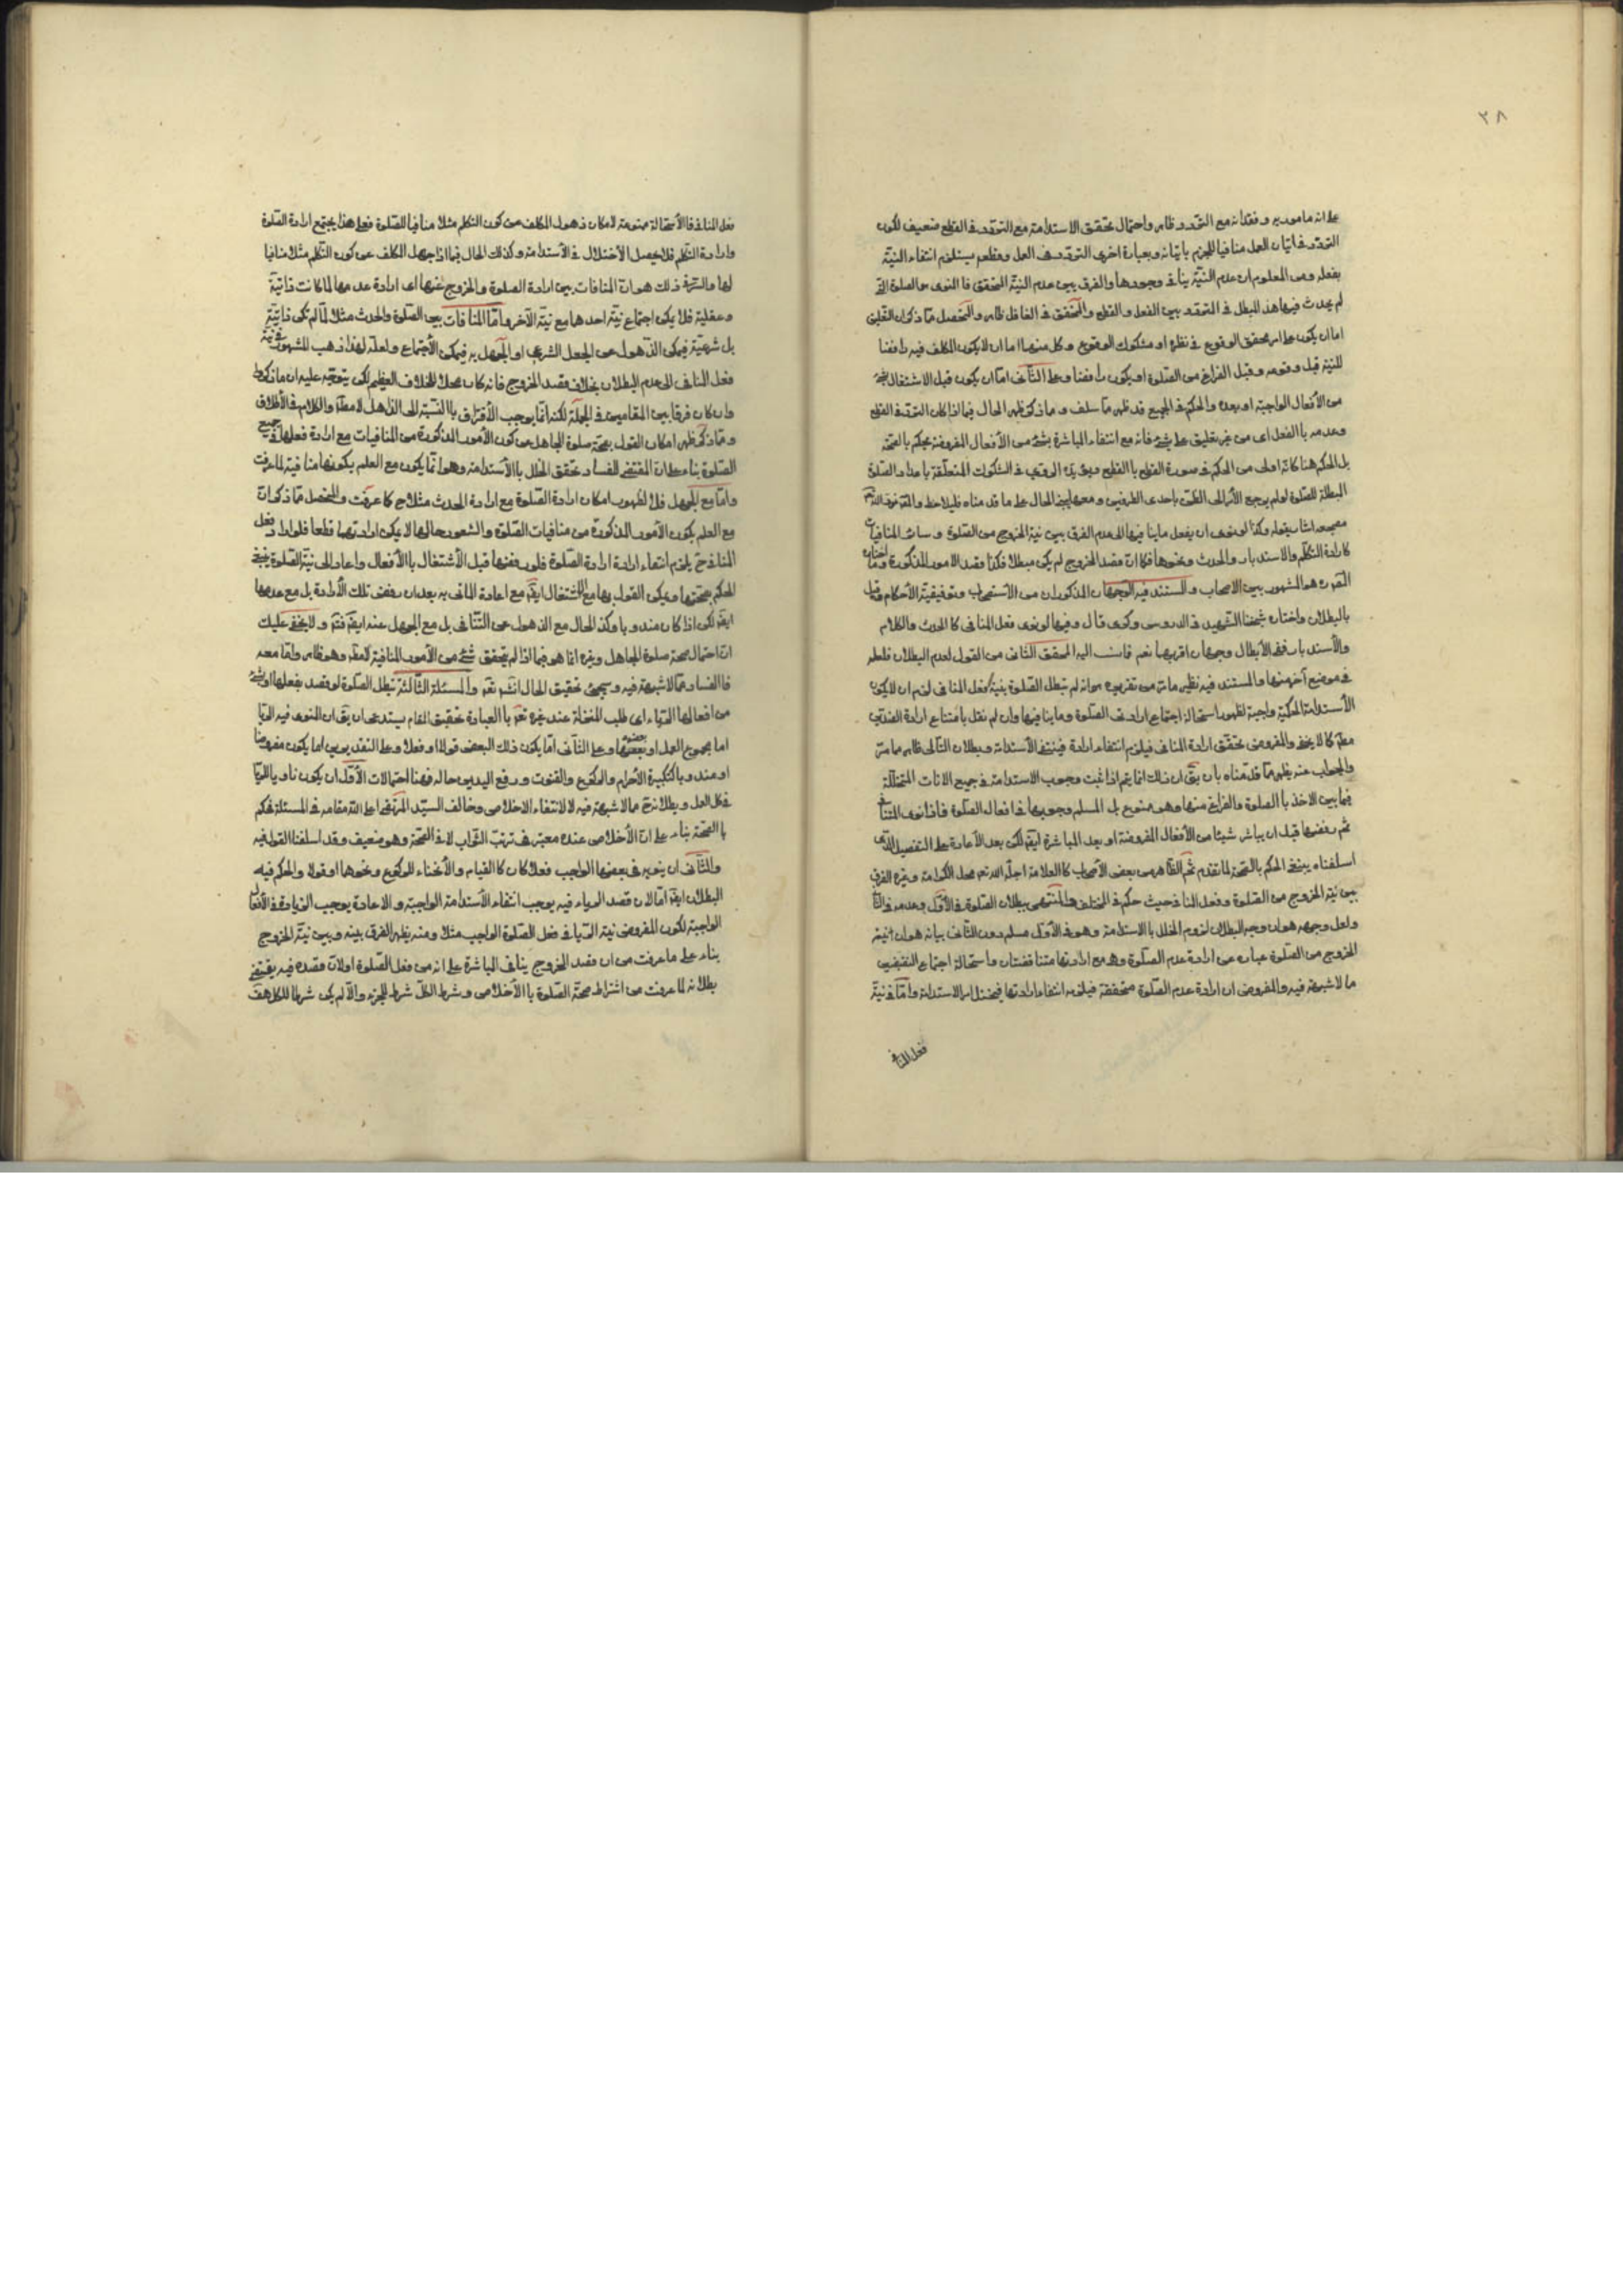 ٣٨
على انه مامور به وفقدانه مع التردد ظاهر واحتمال تحقق الاستدامة مع التردد في القطع ضعيف لكون
التردد في اتيان العمل منافيا للجزم باتيانه وبعبارة اخرى التردد في العمل وقطعه يستلزم انتفاء النية
بفعله ومن المعلوم ان عدم النية ينافي وجودها والفرق بين عدم النية المحقق في المنوي والصلوة التي
لم يحدث فيها هذا المبطل في التردد بين الفعل والقطع والمحقق في الغافل ظاهر والمتحصل مما ذكر ان القلبي
اما ان يكون على امر محقق الوقوع في نظره او مشكوك الوقوع وكل منهما اما ان لا يكون المكلف فيه رافضا
للنية قبل وقوعه وقبل الفراغ من الصلوة او يكون رافضا وعلى الثاني اما ان يكون قبل الاشتغال بشئ
من الأفعال الواجبة او بعده والحكم في الجميع قد ظهر مما سلف ومما ذكر ظهر الحال فيما اذا كان التردد في القطع
وعدمه بالفعل اي من غير تعليق على شئ فانه مع انتفاء المباشرة بشئ من الأفعال المفروضة يحكم بالصحة
بل الحكم هنا كانه اولى من الحكم في صورة القطع بالقطع ويؤيده المروي في الشكوك المتعلقة باعداد الصلوة
البطلة للصلوة لو لم يرجع الأمر الى الظن باحدى الطرفين ومعها يتضح الحال على ما قدمناه فليلاحظ والمقرر
وكذا لو نوى ان يفعل ما ينافيها الى عدم الفرق بين نية الخروج من الصلوة وسائر المنافيات
كارادة التكلم والاستدبار والحدث ونحوها فكما ان قصد الخروج لم يكن مبطلا فكذا قصد الامور المذكورة وما اختاره
المقرر هو المشهور بين الاصحاب والمستند فيه الوجهان المذكوران من الاستصحاب وتوقيفية الأحكام وقيل
بالبطلان واختاره شيخنا الشهيد في الدروس وكرى قال وفيها لو نوى فعل المنافي كالحدث والكلام
والأستدبار ففي الأبطال وجهان اقربهما نعم فانسب اليه المحقق الثاني من القول لعدم البطلان فلعله
في موضع آخر منها والمستند فيه نظير ما مر من تقريره من انه لو لم تبطل الصلوة بنية فعل المنافي لزم ان لا يكون
الأستدامة الحكمية واجبة لظهور استحالة اجتماع ارادتي الصلوة وما ينافيها وان لم نقل بامتناع ارادة الضدين
مطلقا كما لا يخفى والمفروض تحقق ارادة المنافي فيلزم انتفاء ارادة فينتفي الأستدامة وبطلان التالي ظاهر مما مر
والجواب عنه يظهر مما قدمناه بان يق ان ذلك انما يتم اذا ثبت وجوب الاستدامة في جميع الانات المتخللة
فيما بين الاخذ بالصلوة والفراغ منها وهو ممنوع بل المسلم وجوبها في افعال الصلوة فاذا نوى المنافي
ثم رفضها قبل ان يباشر شيئا من الأفعال المفروضة او بعد المباشرة ايضا لكن بعد الأعادة على التفصيل الذي
اسلفناه ينبغي الحكم بالصحة لما تقدم ثم الظاهر من بعض الأصحاب كالعلامة اجله الله تعم محل الكرامة وغيره الفرق
بين نية الخروج من الصلوة وفعل المنافي حيث حكم في المختلف والمنتهى ببطلان الصلوة في الأول وعدمه في الثاني
ولعل وجهه هو ان وجه البطلان لزوم الخلل بالاستدامة وهو في الأول مسلم دون الثاني بيانه هو ان نية
الخروج من الصلوة عبارة عن ارادة عدم الصلوة وهو مع ارادتها متناقضتان واستحالة اجتماع النقيضين
مما لا شبهة فيه والمفروض ان ارادة عدم الصلوة متحققة فيلزمه انتفاء ارادتها فيختل امر الاستدامة واما في نية
فعل المنافي
فعل المنافي فالأستحالة ممنوعة لامكان ذهول المكلف عن كون التكلم مثلا منافيا للصلوة فعلى هذا يجتمع ارادة الصلوة
وارادة التكلم فلا يحصل الأختلال في الأستدامة وكذلك الحال فيما اذا جهل المكلف عن كون التكلم مثلا منافيا
لها والسر في ذلك هو ان المنافات بين ارادة الصلوة والخروج عنها اي ارادة عدمها لما كانت ذاتية
وعقلية فلا يمكن اجتماع نية احدهما مع نية الآخر واما المنافات بين الصلوة والحدث مثلا لما لم تكن ذاتية
بل شرعية فيمكن الذهول عن الجعل الشرعي او الجهل به فيمكن الأجتماع ولعله لهذا ذهب المشهور في نية
فعل المنافي الى عدم البطلان بخلاف قصد الخروج فانه كان محلا للخلاف العظيم لكن يتوجه عليه ان ما ذكر
وان كان فرقا بين المقامين في الجملة لكنه انما يوجب الأفتراق بالنسبة الى الذاهل لا مطلقا والكلام في الأطلاق
ومما ذكر ظهر امكان القول بصحة صلوة الجاهل عن كون الأمور المذكورة من المنافيات مع ارادة فعلها في جميع
الصلوة بناء على ان المقتضي للفساد تحقق الخلل بالأستدامة وهو انما يكون مع العلم بكونها منافية لما عرفت
واما مع الجهل فلا لظهور امكان ارادة الصلوة مع ارادة الحدث مثلا ح كما عرفت والمتحصل مما ذكر ان
مع العلم بكون الأمور المذكورة من منافيات الصلوة والشعور حالها لا يمكن ارادتهما قطعا فلو اراد فعل
المنافي ح يلزم انتفاء ارادة الصلوة فلو رفضها قبل الأشتغال بالأفعال واعاد الى نية الصلوة ينبغي
الحكم بصحتها ويمكن القول بها مع الاشتغال ايضا مع اعادة المأتي به بعد ان رفض تلك الأرادة بل مع عدمها
ايضا لكن اذا كان مندوبا وكذا الحال مع الذهول عن التنافي بل مع الجهل عنه ايضا فتم ولا يخفى عليك
ان احتمال صحة صلوة الجاهل وغيره انما هو فيما اذا لم يتحقق شئ من الأمور المنافية لا مطلقا وهو ظاهر واما معه
فالفساد مما لا شبهة فيه وسيجئ تحقيق الحال انشاء الله تعم والمسئلة الثالثة تبطل الصلوة لو قصد بفعلها او بشئ
من افعالها الرياء اي طلب المنزلة عند غيره تعم بالعبادة تحقيق المقام يستدعي ان يق ان المنوي فيه الريا
اما مجموع العمل او بعضها وعلى الثاني اما يكون ذلك البعض قولا او فعلا وعلى التقديرين اما يكون مفروضا
او مندوبا كتكبيرة الأحرام والركوع والقنوت ورفع اليدين حاله فهنا احتمالات الأول ان يكون ناويا للريا
في كل العمل وبطلانه ح مما لا شبهة فيه لا لانتفاء الاخلاص وخالف السيد المرتضى اعلى الله مقامه في المسئلة فحكم
بالصحة بناء على ان الأخلاص عنده معتبر في ترتب الثواب لا في الصحة وهو ضعيف وقد اسلفنا القول فيه
والثاني ان ينويه في بعضها الواجب فعلا كان كالقيام والأنحناء للركوع ونحوها او قولا والحكم فيه
البطلان ايضا اما لان قصد الرياء فيه يوجب انتفاء الأستدامة الواجبة والاعادة يوجب الزيادة في الأفعال
الواجبة لكون المفروض نية الريا في فعل الصلوة الواجب مثلا ومنه يظهر الفرق بينه وبين نية الخروج
بناء على ما عرفت من ان قصد الخروج ينافي المباشرة على انه من فعل الصلوة او لان قصده فيه يقتضي
بطلانه لما عرفت من اشتراط صحة الصلوة بالأخلاص وشرط الكل شرط للجزء والا لم يكن شرطا للكل هف